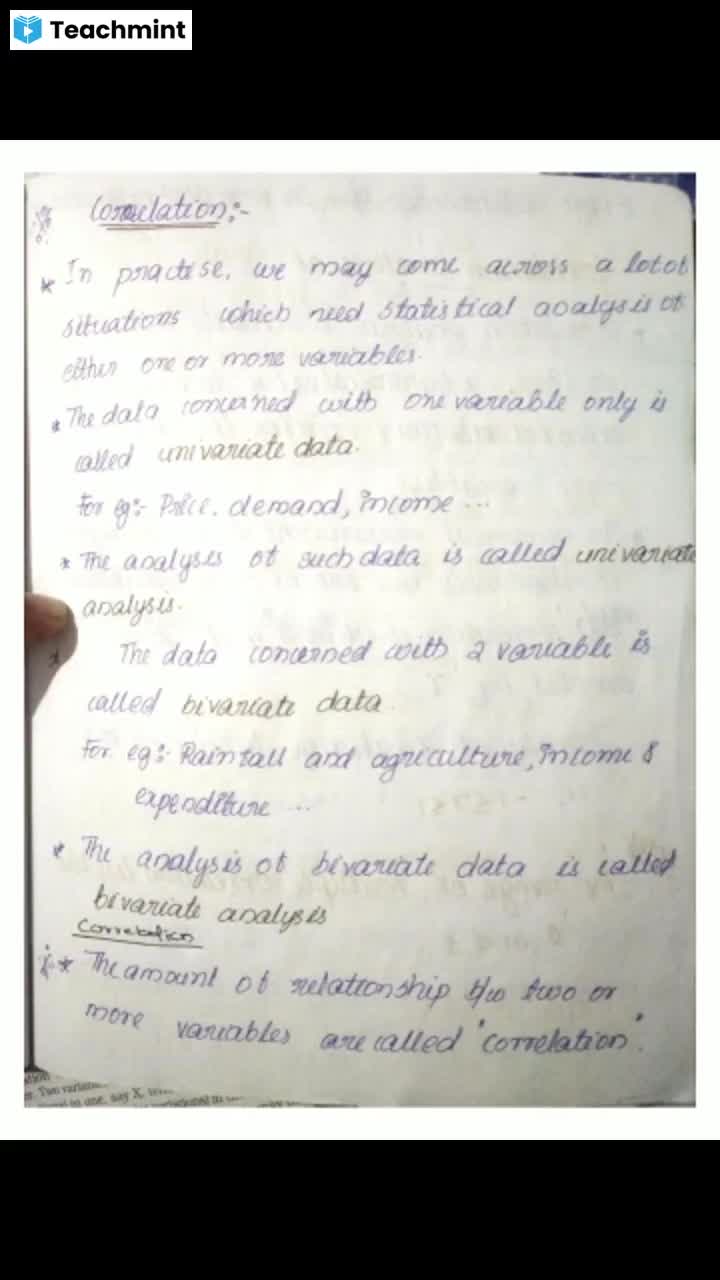 Teachmint
Correlation:-
* In practise, we may come across a lot of
situations which need statistical analysis of
either one or more variables.
* The data concerned with one variable only is
called univariate data.
For eg:- Price, demand, income ...
* The analysis of such data is called univariate
analysis.
* The data concerned with 2 variable is
called bivariate data
For eg:- Rainfall and agriculture, income &
expenditure ...
* The analysis of bivariate data is called
bivariate analysis
Correlation
* The amount of relationship b/w two or
more variables are called "correlation".
er. Two
in one, say X,